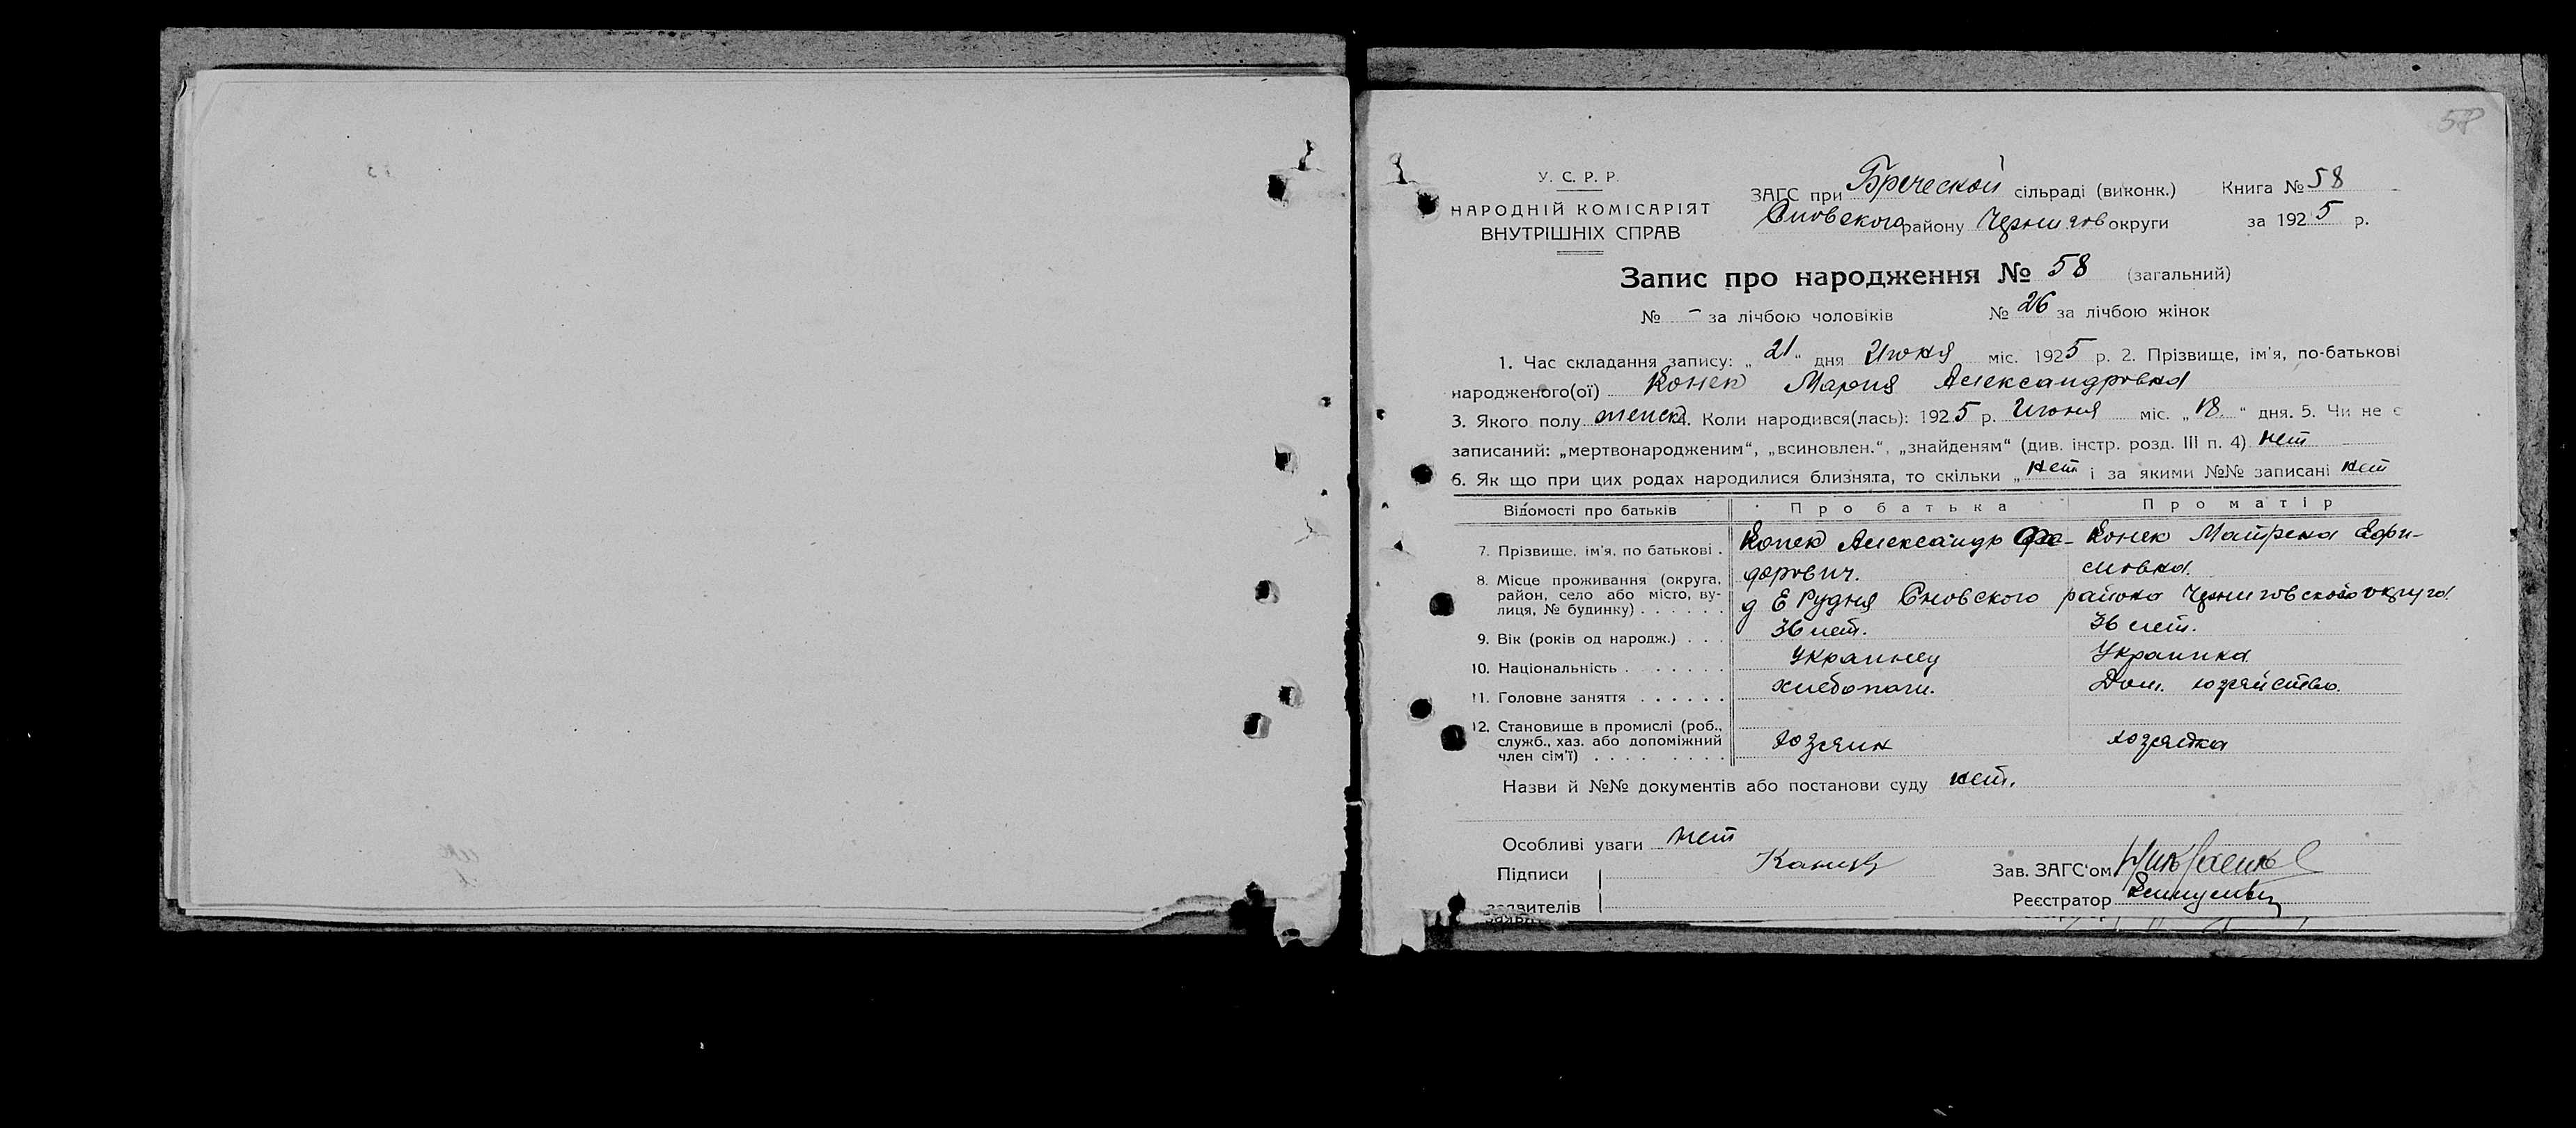 58
У. С. Р. Р.
НАРОДНІЙ КОМІСАРІЯТ
ВНУТРІШНІХ СПРАВ
ЗАГС при Бреческой сільраді (виконк.) Книга № 58
Сновского району Чернигов округи за 1925 р.
Запис про народження № 58 (загальний)
№ - за лічбою чоловіків № 26 за лічбою жінок
1. Час складання запису: „21“ дня Июня міс. 1925 р. 2. Прізвище, ім'я, по-батькові
народженого(ої) Конек Мария Александровна
3. Якого полу женск 4. Коли народився(лась): 1925 р. Июня міс. „18“ дня. 5. Чи не є
записаний: „мертвонародженим“, „всиновлен.“, „знайденям“ (див. інстр. розд. III п. 4) нет
6. Як що при цих родах народилися близнята, то скільки „нет і за якими №№ записані нет
Відомості про батьків Про батька Про матір
7. Прізвище, ім'я, по батькові . Конек Александр Фе- Конек Матрена Ефи-
дорович. мовна.
8. Місце проживання (округа,
район, село або місто, ву-
лиця, № будинку) . . . . . . д Е Рудня Сновского района Черниговского округа.
9. Вік (років од народж.) . . . 36 лет. 36 лет.
10. Національність . . . . . . . Украинец Украинка
11. Головне заняття . . . . . . хлебопаш. Дом. хозяйство.
12. Становище в промислі (роб.,
служб., хаз. або допоміжний
член сім'ї) . . . . . . . . хозяин хозяйка
Назви й №№ документів або постанови суду нет.
Особливі уваги нет
Підписи Зав. ЗАГС'ом
заявителів Реєстратор